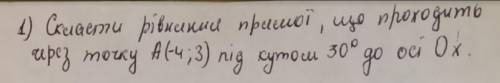 1) Скласти рівняння прямої, що проходить
через точку A(-4;3) під кутом 30° до осі Ox.